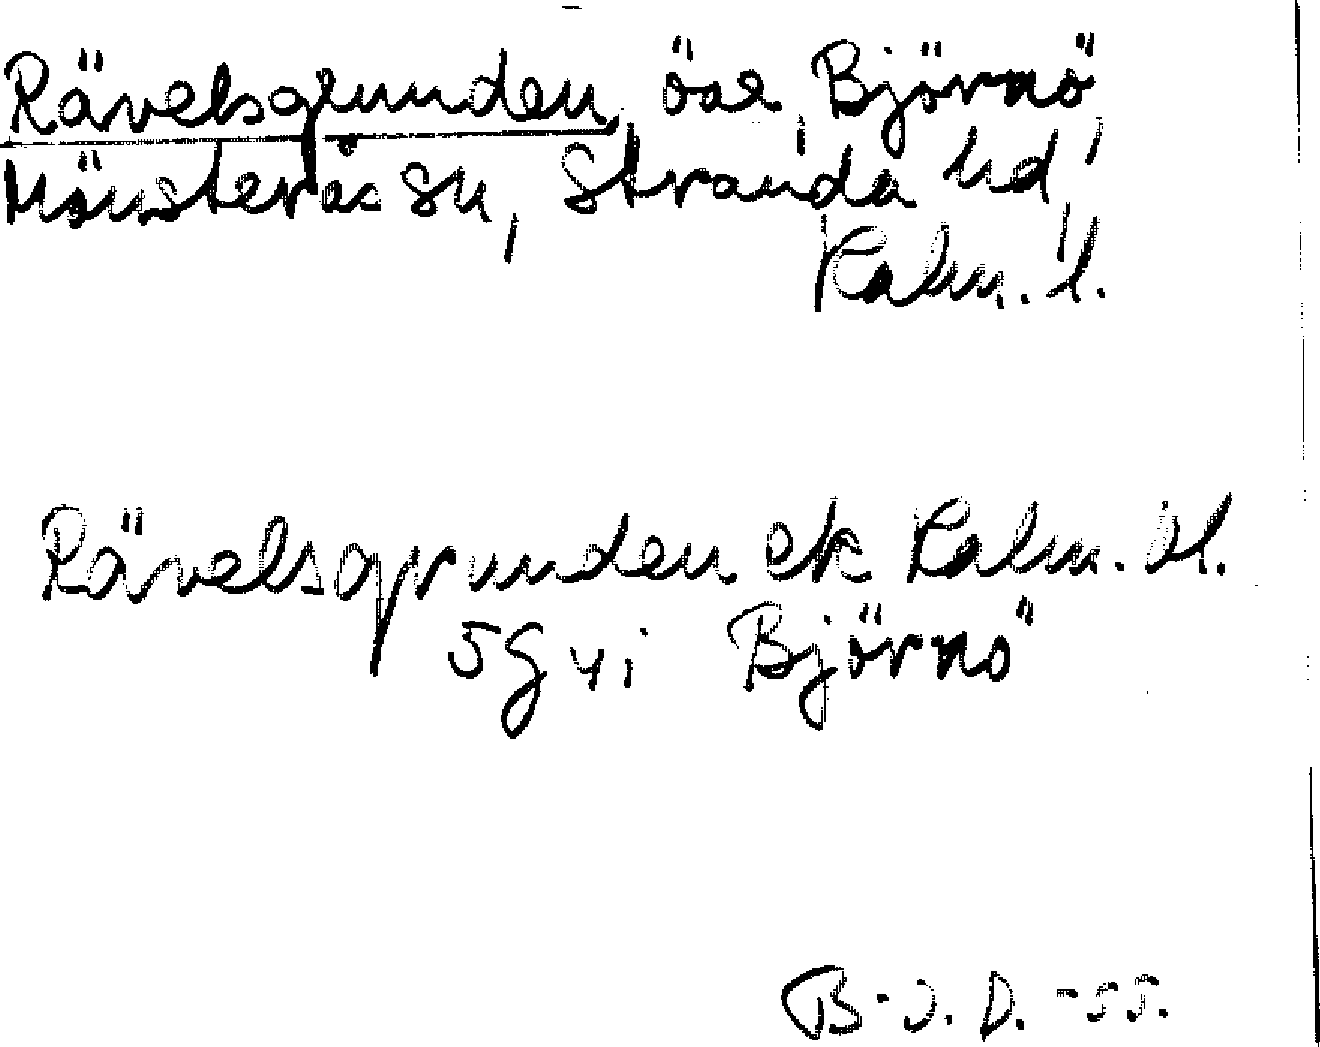 Rävelsgrunden, öar, Björnö,
Mönsterås sn, Stranda hd,
Kalm. l.
Rävelsgrunden ek Kalm. l.
5G 4i Björnö
B-J. D. -55.